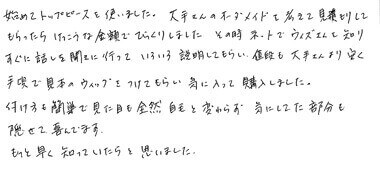 始めてトップピースを使いました。大手さんのオーダーメイドも考えて見積もりして
もらったらけっこうな金額でびっくりしました その時ネットでウィズさんを知り
すぐに話しを聞きに行って いろいろ説明してもらい、値段も大手さんより安く
手頃で見本のウィッグをつけてもらい 気に入って購入しました。
付け方も簡単で見た目も全然自毛と変わらず 気にしてた部分も
隠せて喜んでます。
もっと早く知っていたらと思いました。